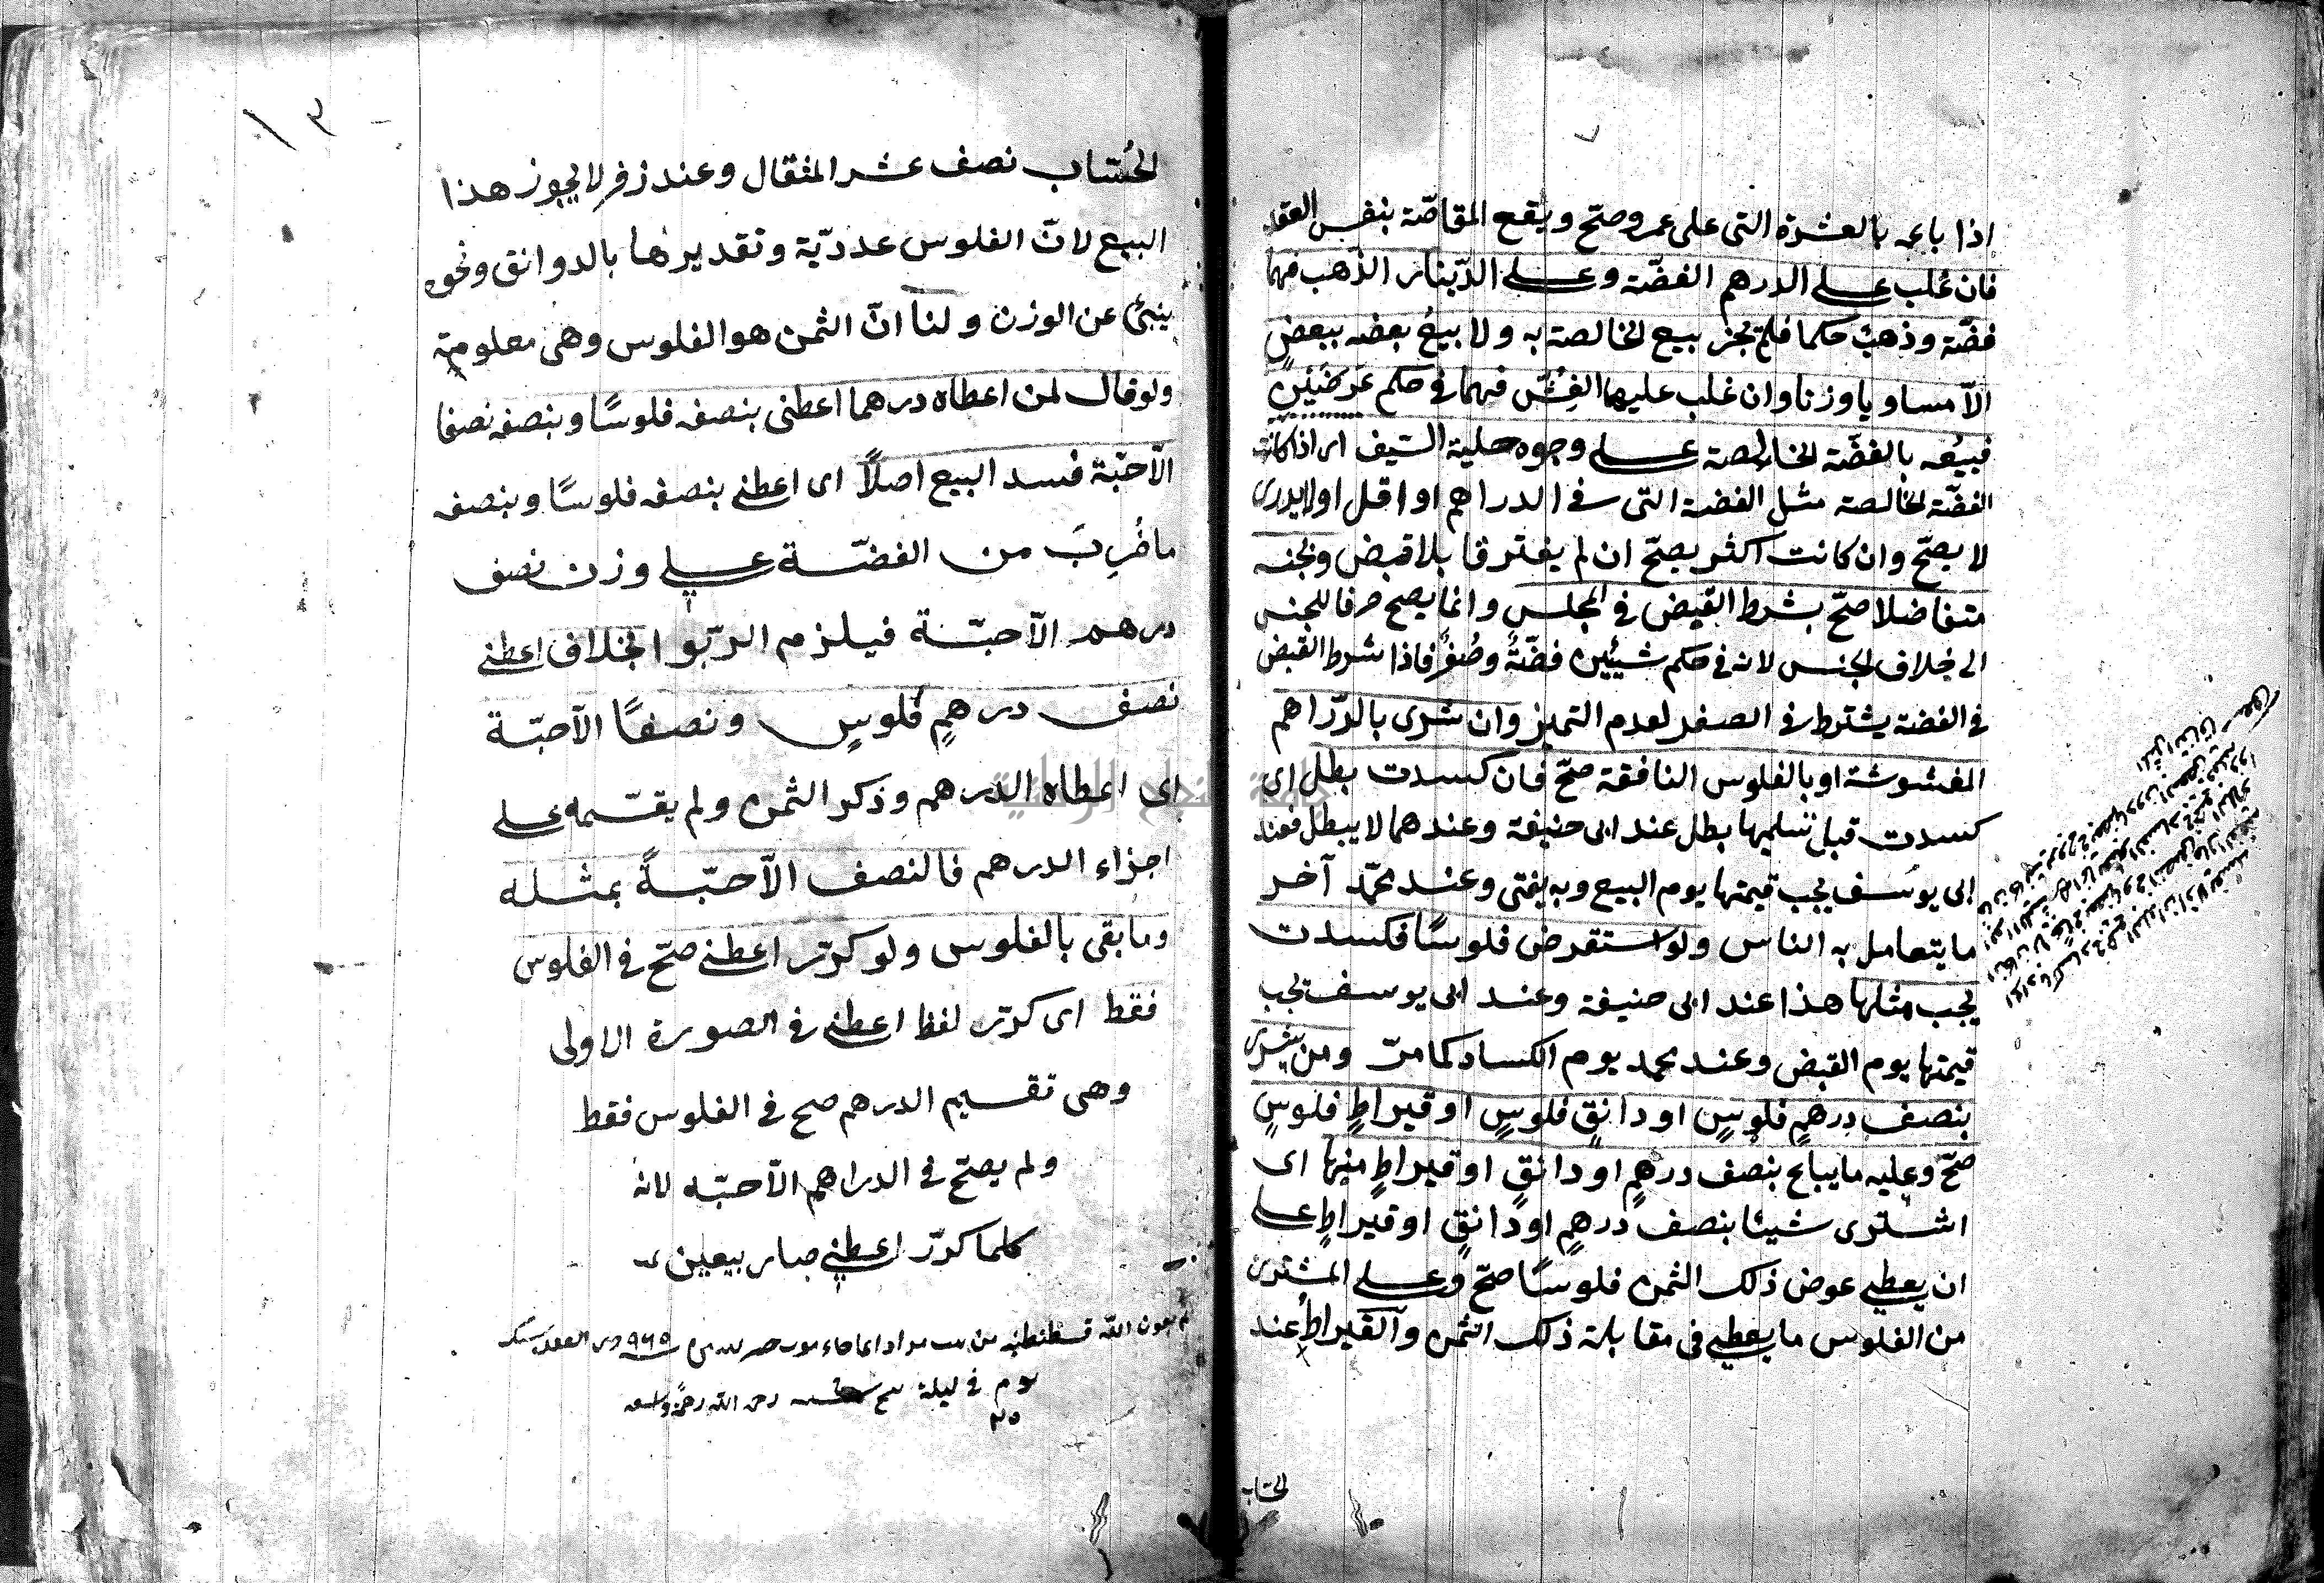 اذا باعه بالعشرة التى على عمرو صحّ ويقع المقاصّة بنفس العقد
فان غلب على الدرهم الفضّة وعلى الدّينار الذّهب فهما
فضّة وذهبٌ حكما فلم يجز بيع الخالصة به ولا بيعُ بعضه ببعضٍ
الّا مساويا وزنا وان غلب عليهما الغِشّ فهما فى حكم عرضَيْنِ
فبيعُه بالفضّة الخالصة على وجوه حلية السّيف اى اذا كانت
الفضّة الخالصة مثل الفضة التى فى الدراهم او اقل او لا يدرى
لا يصحّ وان كانت اكثر يصحّ ان لم يفترقا بلا قبض وبجنسه
متفاضلا صحّ بشرط القبض فى المجلس وانما يصح صرفا للجنس
الى خلاف الجنس لانه فى حكم شيئين فضّةٌ وصُفْرٌ فاذا شرط القبض
فى الفضة يشترط فى الصفر لعدم التميز وان شرى بالدّراهم
المغشوشة او بالفلوس النافقة صحّ فان كسدت بطل اى
كسدت قبل تسليمها بطل عند ابى حنيفة وعندهما لا يبطل فعند
ابى يوسف يجب قيمتها يوم البيع وبه يفتى وعند محمّد آخر
ما يتعامل به الناس ولو استقرض فلوسًا فكسدت
يجب مثلها هذا عند ابى حنيفة وعند ابى يوسف يجب
قيمتها يوم القبض وعند محمد يوم الكساد كما مرّ ومن يشترى
بنصف درهمٍ فلوسٍ او دانقٍ فلوسٍ او قيراطٍ فلوسٍ
صحّ وعليه ما يباع بنصف درهمٍ او دانقٍ او قيراطٍ منها اى
اشترى شيئا بنصف درهمٍ او دانقٍ او قيراطٍ على
ان يعطى عوض ذلك الثمن فلوسًا صحّ وعلى المشترى
من الفلوس ما يعطى فى مقابلة ذلك الثمن والقيراط عند
الحُسّاب
الحُسّاب نصف عشر المثقال وعند زفر لا يجوز هذا
البيع لانّ الفلوس عدديّة وتقديرها بالدوانق ونحوه
ينبئ عن الوزن ولنا انّ الثمن هو الفلوس وهى معلومة
ولو قال لمن اعطاه درهما اعطنى بنصفه فلوسًا وبنصفه نصفا
الّا حبّة فسد البيع اصلًا اى اعطنى بنصفه فلوسًا وبنصفه
ما ضُرِبَ من الفضّة على وزن نصف
درهم الّا حبّة فيلزم الرّبوا بخلاف اعطنى
نصف درهمٍ فلوسٍ ونصفًا الّا حبّة
اى اعطاه الدرهم وذكر الثمن ولم يقسّمه على
اجزاء الدرهم فالنصف الّا حبّةً بمثله
وما بقى بالفلوس ولو كرّر اعطنى صحّ فى الفلوس
فقط اى كرّر لفظ اعطنى فى الصورة الاولى
وهى تقسيم الدرهم صح فى الفلوس فقط
ولم يصحّ فى الدراهم الّا حبّه لانه
كلما كرّر اعطنى صار بيعين